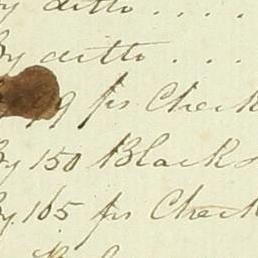 By ditto . . . .
By ditto . . .
9 ps Check
By 150 Blacks
By 165 ps Check